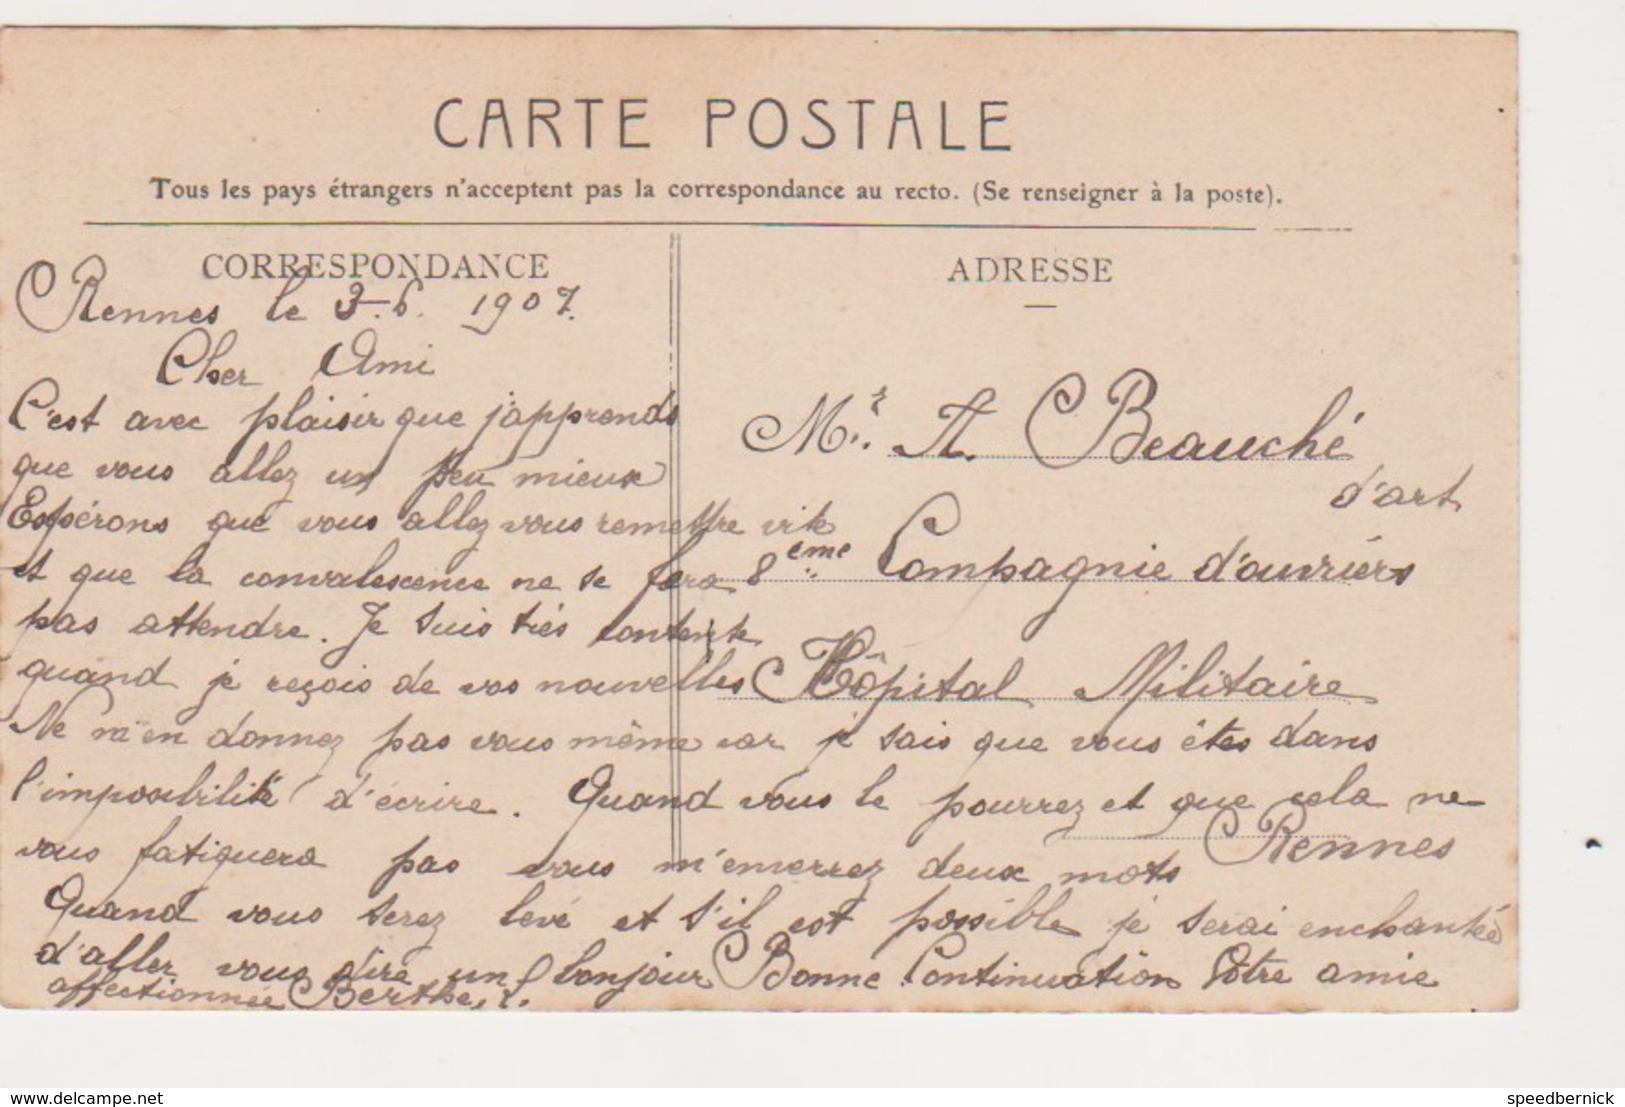 CARTE POSTALE
Tous les pays étrangers n'acceptent pas la correspondance au recto. (Se renseigner à la poste).
CORRESPONDANCE
Rennes le 3-6. 1907.
Cher Ami
C'est avec plaisir que j'apprends
que vous allez un peu mieux
Espérons que vous allez vous remettre vite
et que la convalescence ne se fera
pas attendre. Je suis très contente
quand je reçois de vos nouvelles
Ne m'en donnez pas vous même car je sais que vous êtes dans
l'imposibilité d'écrire. Quand vous le pourrez et que cela ne
vous fatiguera pas vous m'enverrez deux mots
Quand vous serez levé et s'il est possible je serai enchantée
d'aller vous dire un bonjour Bonne Continuation Votre amie
affectionnée Berthe
ADRESSE
Mr. A. Beauché
d'art
8ème Compagnie d'ouvriers
Hôpital Militaire
Rennes
http://www.delcampe.net
speedbernick